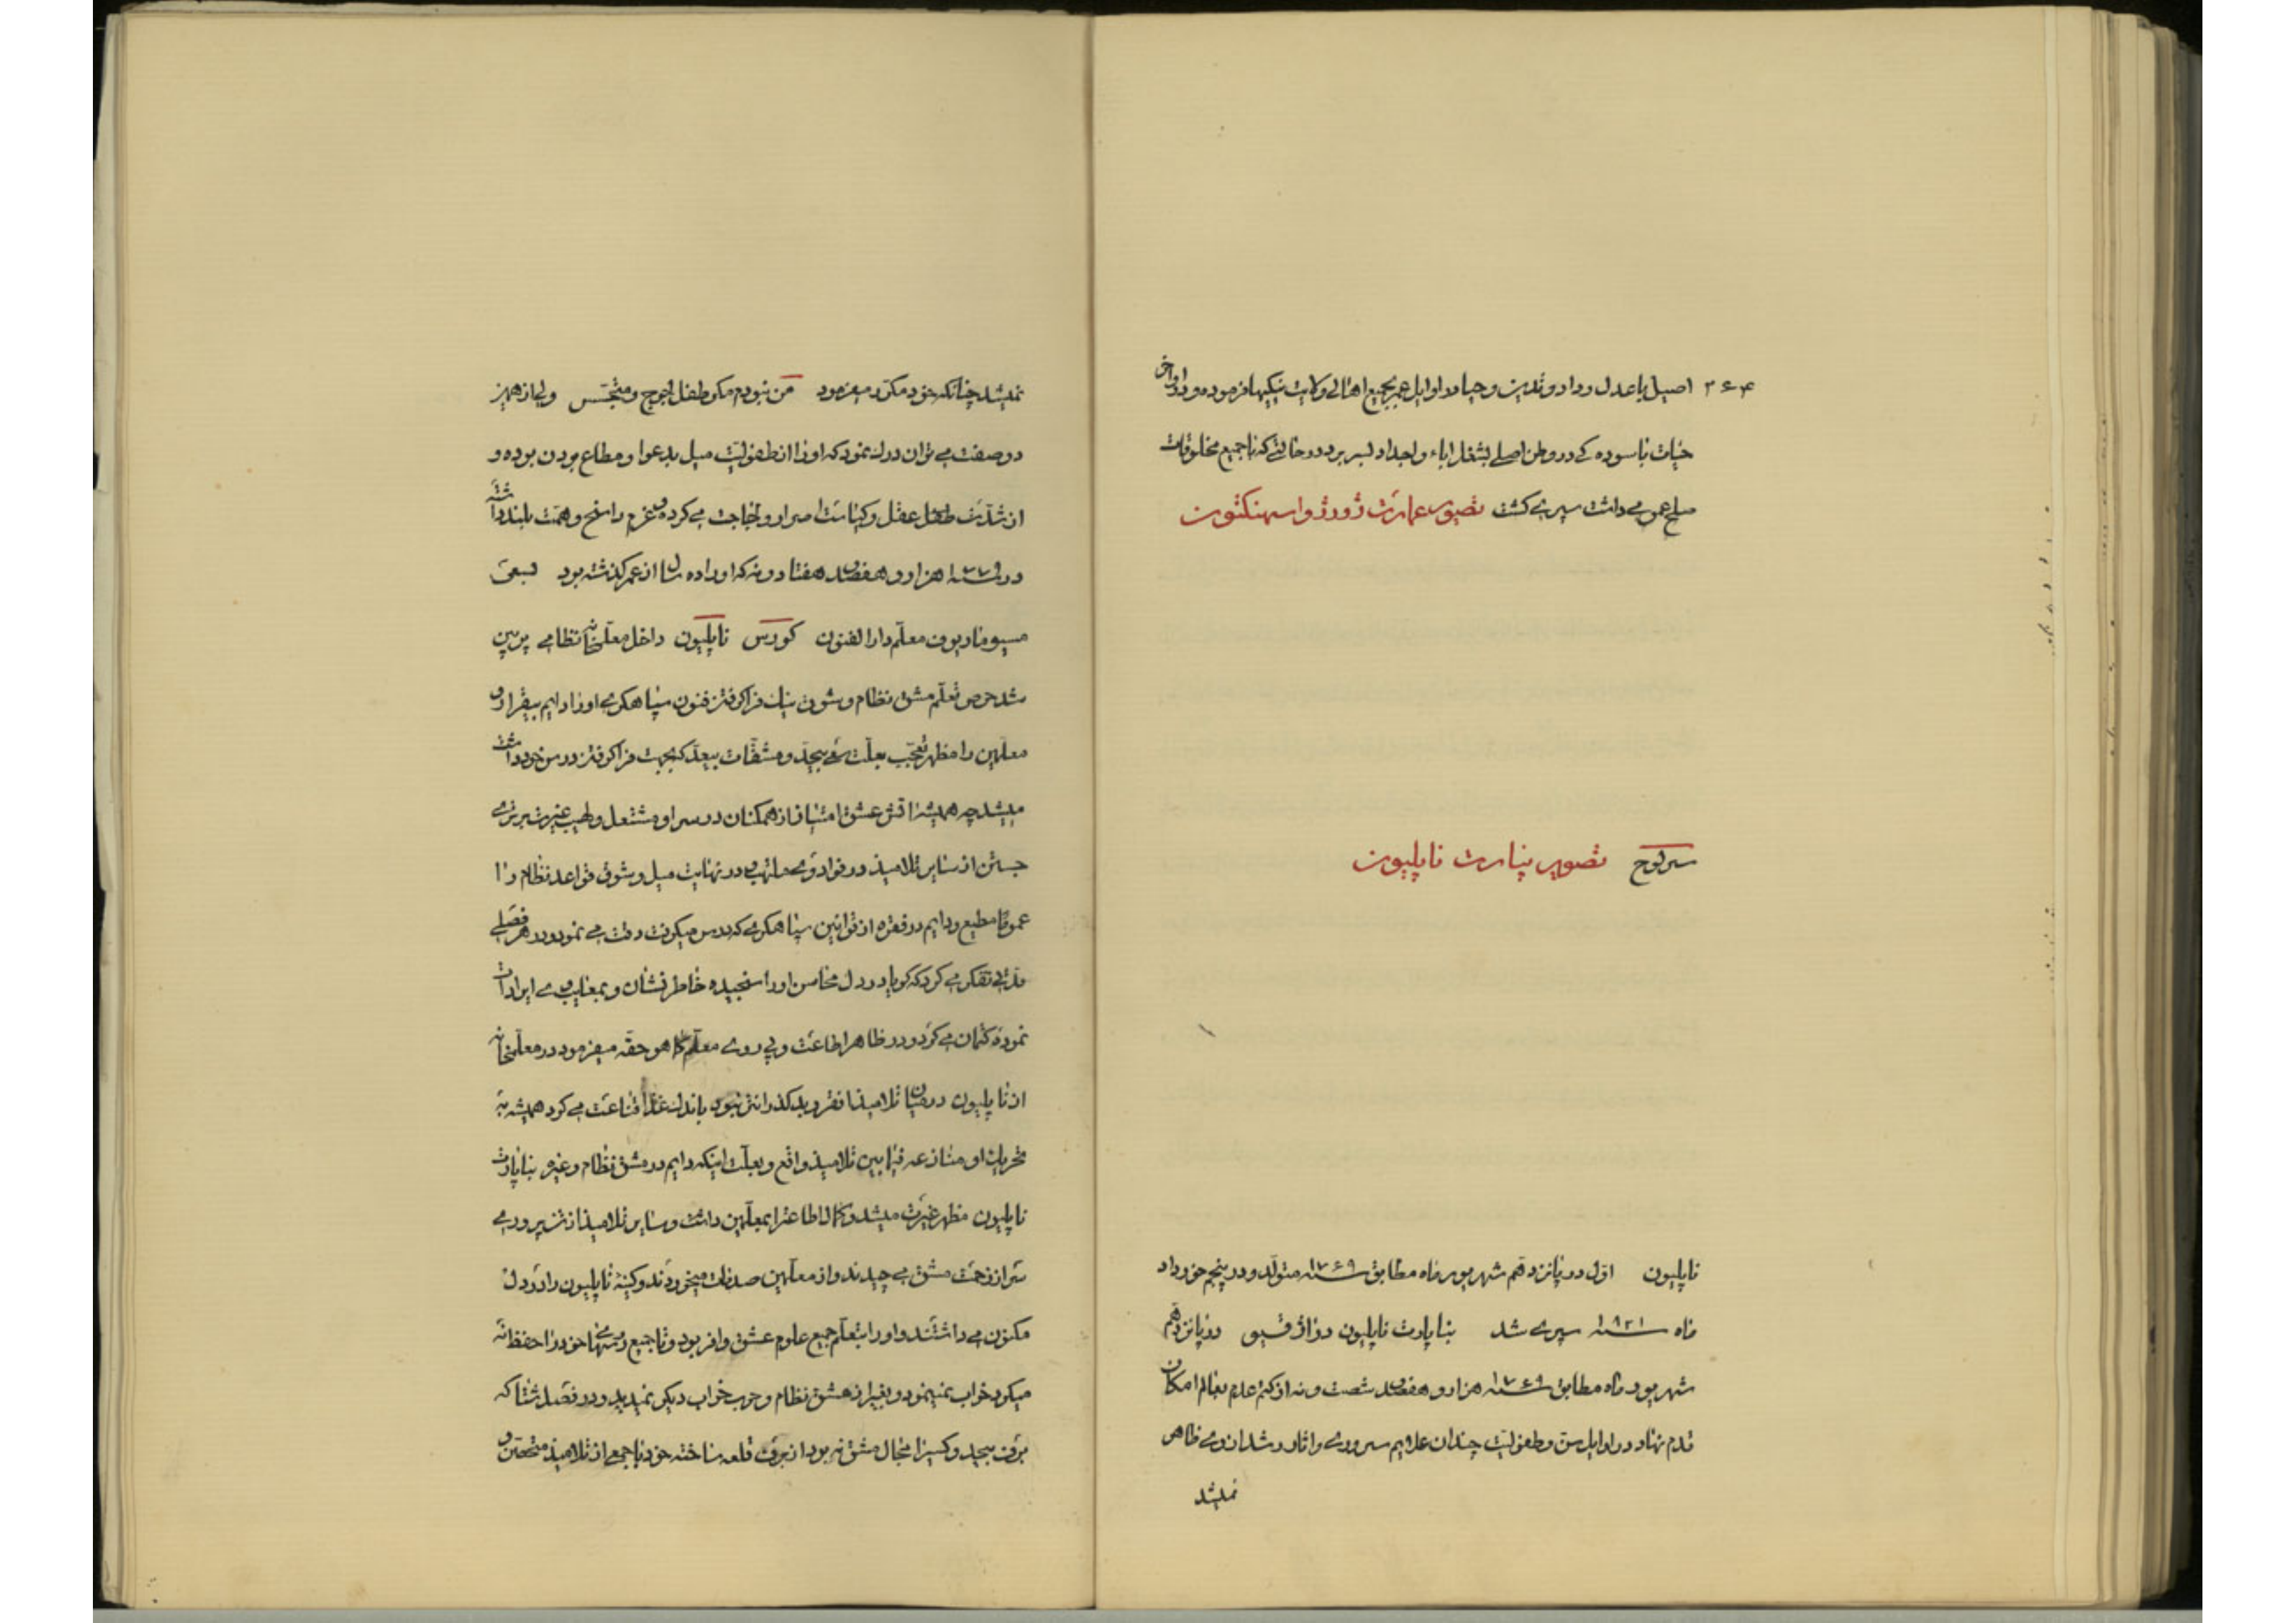 ۳۶۴ اصیل با عدل و داد و تدین و حیا در اوایل عمر بجمیع اهالی ولایت نیکیها فرموده و در اواخر
حیات باسوده کی در وطن اصلی بشغل اباء و اجداد بسر برد در حالتی که با جمیع مخلوقات
صلح عمومی داشت سپری گشت تصویر عمارت ژورژ واسهنکتون
سرلوح تصویر بناپارت ناپلیون
ناپلیون اول در پانزدهم شهریور ماه مطابق سنه ۱۷۶۹ متولد و در پنجم خورداد
ماه سنه ۱۸۲۱ سپری شد بناپارت ناپلیون در اژاقسیو در پانزدهم
شهریور ماه مطابق سنه ۱۷۶۹ هزار و هفصد شصت و نه از کتم عدم بعالم امکان
قدم نهاد در اوایل سن و طفولیت چندان علایم سروری و اثار رشد از وی ظاهر
نمیشد
نمیشد چنانکه خود مکرر میفرمود من نبودم مکر طفل لجوج و متجسس ولی از همین
دو صفت می توان درک نمود که او را از طفولیت میل بدعوا و مطاع بودن بوده و
از شدت عقل و کیاست اصرار و لجاجت می کرده و عزم راسخ و همت بلند داشته
در سنه ۱۷۷۹ هزار و هفصد هفتاد و نه که او را ده سال از عمر کذشته بود بسعی
مسیو ماربوف معلم دارالفنون کورس ناپلیون داخل معلمخانه نظامی برین
شد حرص تعلم مشق نظام و شوق نیک فرا کرفتن فنون سپاهکری او را دایم بیقرار و
معلمین را مظهر تعجب بعلت سعی بیحد و مشقات بیعد که بجهت فرا کرفتن درس خود داشت
میشد چه همیشه اتش عشق امتیاز از همکنان در سر او مشتعل و لهیب غیرت برتری
جستن از سایر تلامیذ در فواد وی ملتهب در نهایت میل و شوق قواعد نظام را
عموما مطیع و دایم در فقره از قوانین سپاهکری که درس میکرفت دقت می نمود و در هر فصلی
مدتی تفکر می کرد که کویا در دل محاسن او را سنجیده خاطر نشان و بمعایب وی ایرادات
نموده کتمان می کرد و در ظاهر اطاعت و پی روی معلم کما هو حقه میفرمود در معلمخانه
از ناپلیون در میان تلامیذ فقر و بد کذران تر نبود باندک غذا قناعت می کرد همیشه به
تحریک او منازعه فیمابین تلامیذ واقع و بعلت اینکه دایم در مشق نظام و غیره بناپارت
ناپلیون مظهر غیرت میشد و کمال اطاعت را بمعلمین داشت و سایر تلامیذ از تن پروری
سر از زحمت مشق می چیدند و از معلمین صدمات میخوردند و کینه ناپلیون را در دل
مکنون می داشتند و او را بتعلم جمیع علوم عشق وافر بود و تا جمیع درسهای خود را حفظ نه
میکرد خواب نمینمود و بغیر از مشق نظام و حرب خواب دیکر نمیدید و در فصل شتا که
برف بیحد و کسیرا مجال مشق نه بود از برف قلعه ساخته خود با جمعی از تلامیذ متحصن و